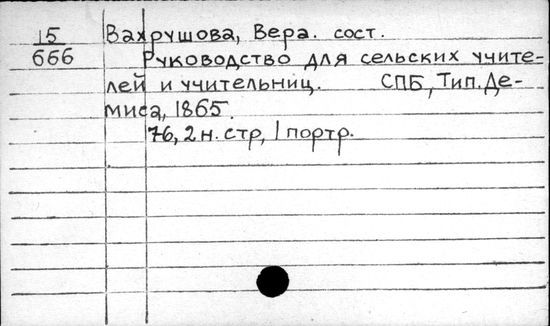 15 Вахрушова, Вера. сост.
666 Руководство для сельских учите-
лей и учительниц. СПБ, Тип. Де-
миса, 1865.
76, 2 н. стр, 1 портр.